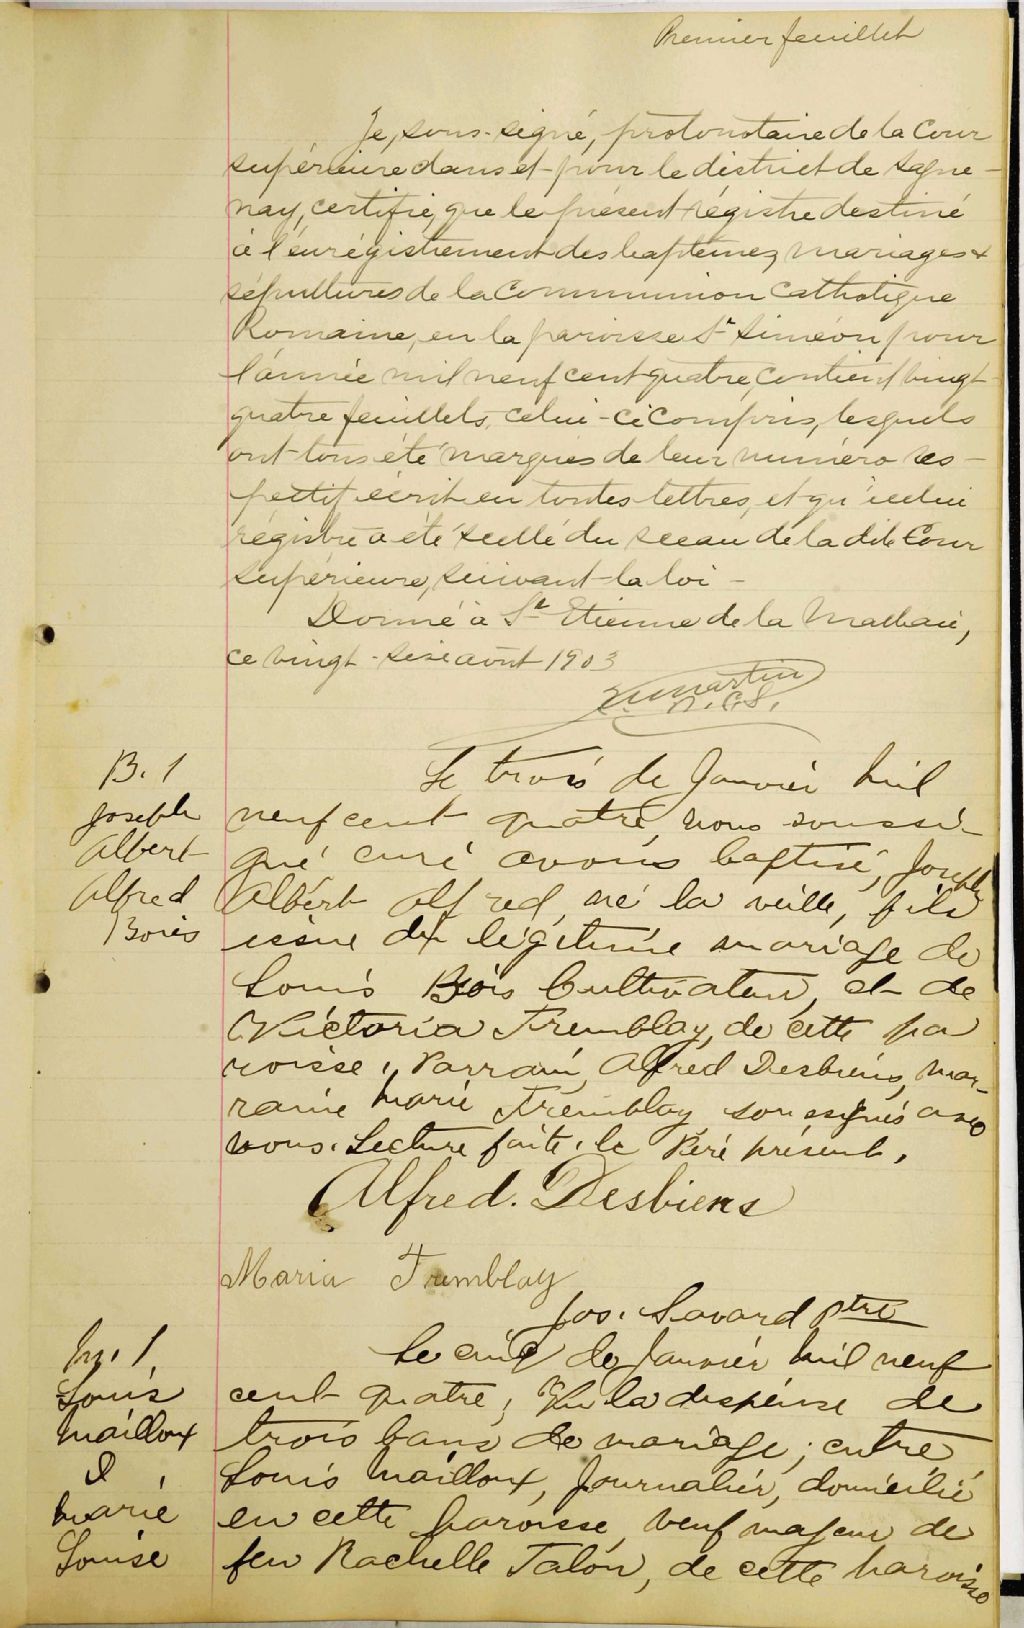 Premier feuillet
Je, sous-signé, protonotaire de la Cour
supérieure dans et pour le district de Sague-
nay, certifie, que le présent régistre destiné
à l'enrégistrement des baptêmes, mariages &
sépultures de la Communion Catholique
Romaine, en la paroisse St Siméon pour
l'année mil neuf cent quatre, contient vingt-
quatre feuillets, celui-ci compris, lesquels
ont tous été marqués de leur numéro res-
pectif écrit en toutes lettres, et qu'icelui
régistre a été scellé du sceau de la dite Cour
Supérieure, suivant la loi -
Donné à St Etienne de la Malbaie,
ce vingt-seize août 1903
Martin
P.C.S.
B. 1
Joseph
Albert
Alfred
Boies
Le trois de Janvier mil
neuf cent quatre, nous soussi-
gné curé avons baptisé, Joseph
Albert Alfred, né la veille, fils
issue du légitime mariage de
Louis Bois Cultivateur, et de
Victoria Tremblay, de cette pa
roisse, Parrain, Alfred Desbiens, mar-
raine Marie Tremblay soussignés avec
nous. Lecture faite. le Père présent.
Alfred. Desbiens
Maria Tremblay
Jos. Savard ptre
M. 1.
Louis
Mailloux
&
Marie
Louise
Le cinq de Janvier mil neuf
cent quatre, Vu la dispense de
trois bans de mariage; entre
Louis Mailloux, Journalier, domicilié
en cette paroisse, veuf majeur de
feu Rachelle Talon, de cette paroisse